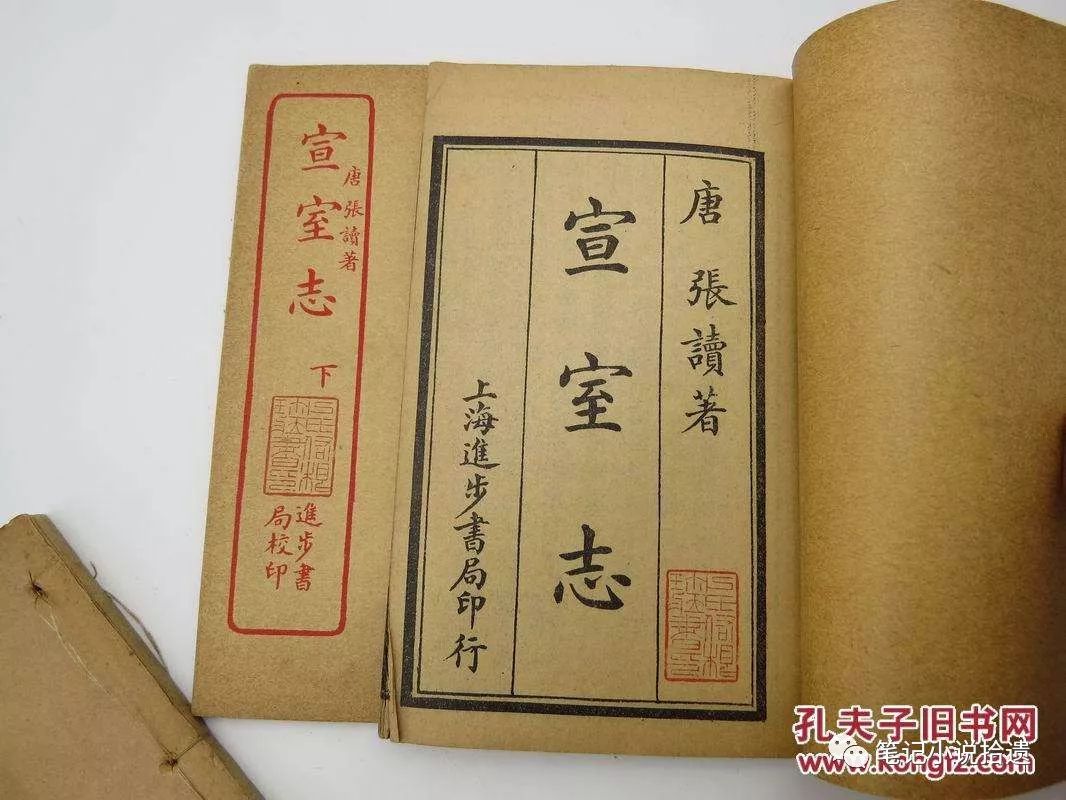 唐張讀著
宣室志
上海進步書局印行
唐張讀著
宣室志
下
進步書
局校印
孔夫子旧书网
笔记小说拾遗
www.kongfz.com